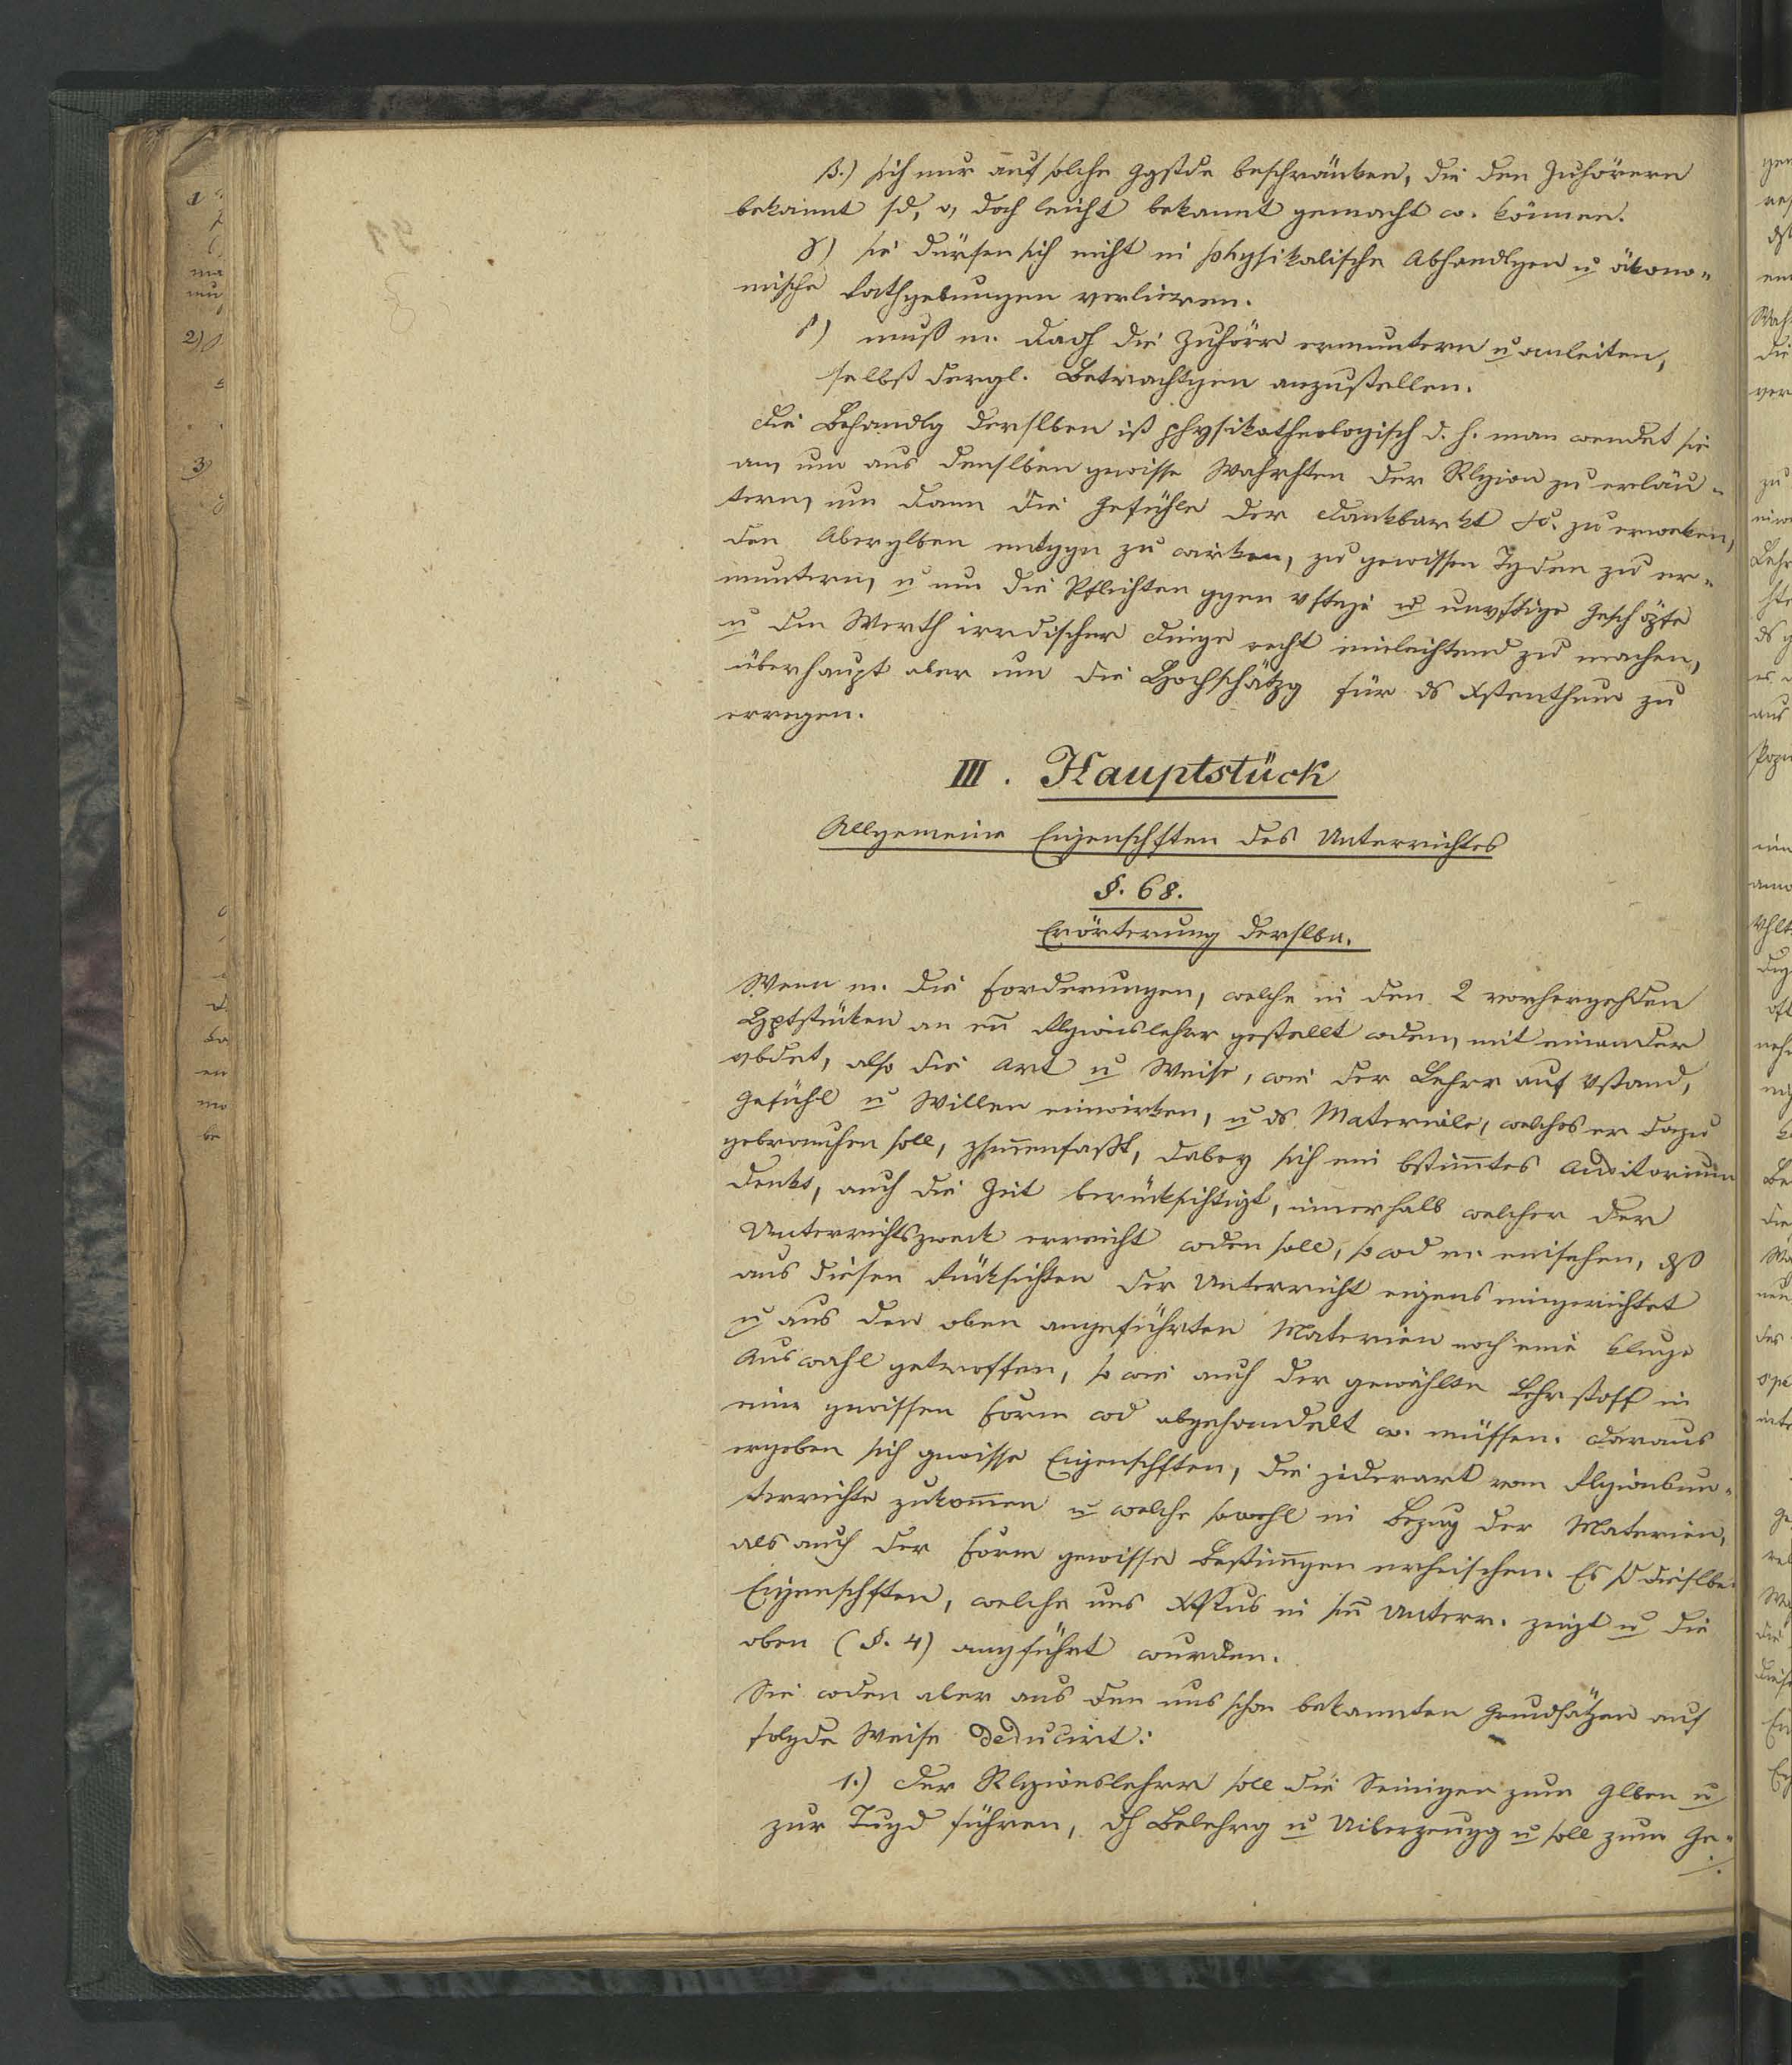 β.) sich nur auf solche Ggstde beschränken, die den Zuhörern
bekannt sd, o, doch leicht bekannt gemacht w. können.
γ) sie dürfen sich nicht in physikalische Abhandlgen u ökono-
mische Rathgebungen verlieren.
δ) muß m. dach die Zuhörr ermuntern u anleiten,
selbst dergl. Betrachtgen anzustellen.
Die Behandlg derslben ist physikotheologisch d. h. man wendet sie
an, um aus denslben gewisse Wahrhten der Rlgion zu erläu-
tern, um dann die Gefühle der Dankbarkt &c. zu erweken,
den Aberglben entggn zu wirken, zu gewissen Tgden zu er-
muntern, u um die Pflichten ggen vftige u unvftige Geschöpfe
u den Werth irrdischer Dinge recht einleichtend zu machen,
überhaupt aber um die Hochschätzg für ds Xstenthum zu
erregen.
III. Hauptstück
Allgemeine Eigenschften des Unterrichtes
§. 68.
Erörterung derslbn.
Wenn m. die Forderungen, welche in den 2 vorhergehden
Hptstüken an en̄ Rlgionslehrer gestellt wden, mit einander
vbdet, also die Art u Weise, wie der Lehrr auf Vstand,
Gefühl u Willen einwirken, u ds Materiale, welches er dazu
gebrauchen soll, zsam̄enfaßt, dabey sich ein bstim̄tes Auditorium
denkt, auch die Zeit berüksichtigt, innerhalb welcher der
Unterrichtszweck erreicht wden soll, so wd m. einsehen, dß
aus diesen Rüksichten der Unterricht eigens eingerichtet
u aus den oben angeführten Materien noch eine kluge
Auswahl getroffen, so wie auch der gewählte Lehrstoff in
einr gewissen Form wd abgehandelt w. müssen. Daraus
ergeben sich gewisse Eigenschften, die jederart vom Rlgionsun-
terrichte zukom̄en u welche sowohl in Bezug der Materien,
als auch der Form gewisse Bestim̄gen erheischen. Es sd dieslbe
Eigenschften, welche uns Xstus in sn̄ Unterr. zeigt u die
oben (§. 4) angführt wurden.
Sie wden aber aus den uns schon bekannten Grundsätzen auf
folgde Weise deducirt:
1.) Der Rlgionslehrr soll die Seinigen zum Glben u
zur Tugd führen, dh Belehrg u Uiberzeugg u soll zum Ge-
./.